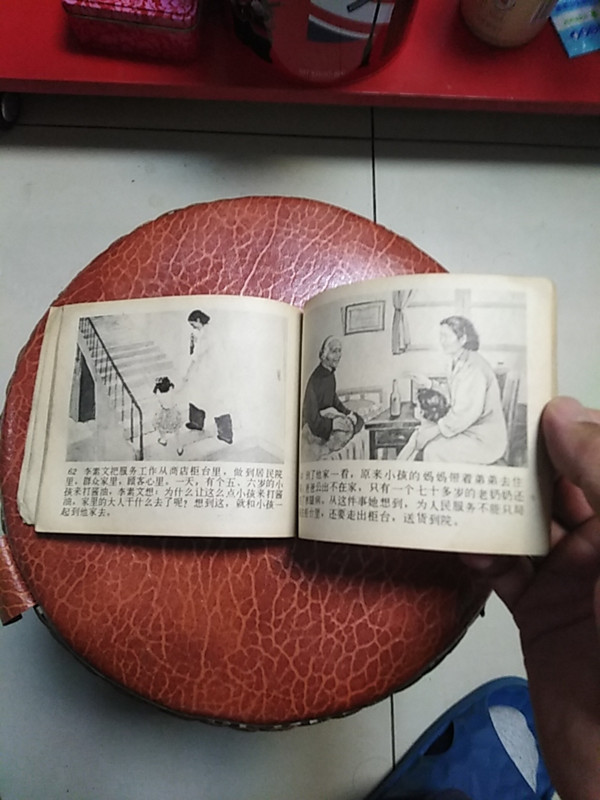 62 李素文把服务工作从商店柜台里，做到居民院
里，群众家里，顾客心里。一天，有个五、六岁的小
孩来打酱油，李素文想：为什么让这么点小孩来打酱
油，家里的大人干什么去了呢？想到这，就和小孩一
起到他家去。
到了他家一看，原来小孩的妈妈带着弟弟去住
出不在家，只有一个七十多岁的老奶奶还
从这件事她想到，为人民服务不能只局
柜台里，还要走出柜台，送货到院。